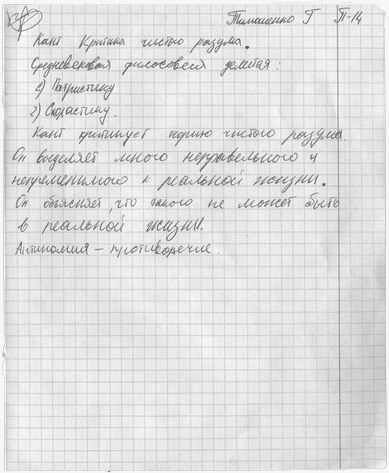 Тимошенко Г П-14
Кант Критика чистого разума.
Средневековая философия делится:
1) Патристику
2) Схоластику.
Кант критикует теорию чистого разума.
Он выделяет много неправильного и
неприменимого к реальной жизни.
Он объясняет, что такого не может быть
в реальной жизни.
Антиномия – противоречие.